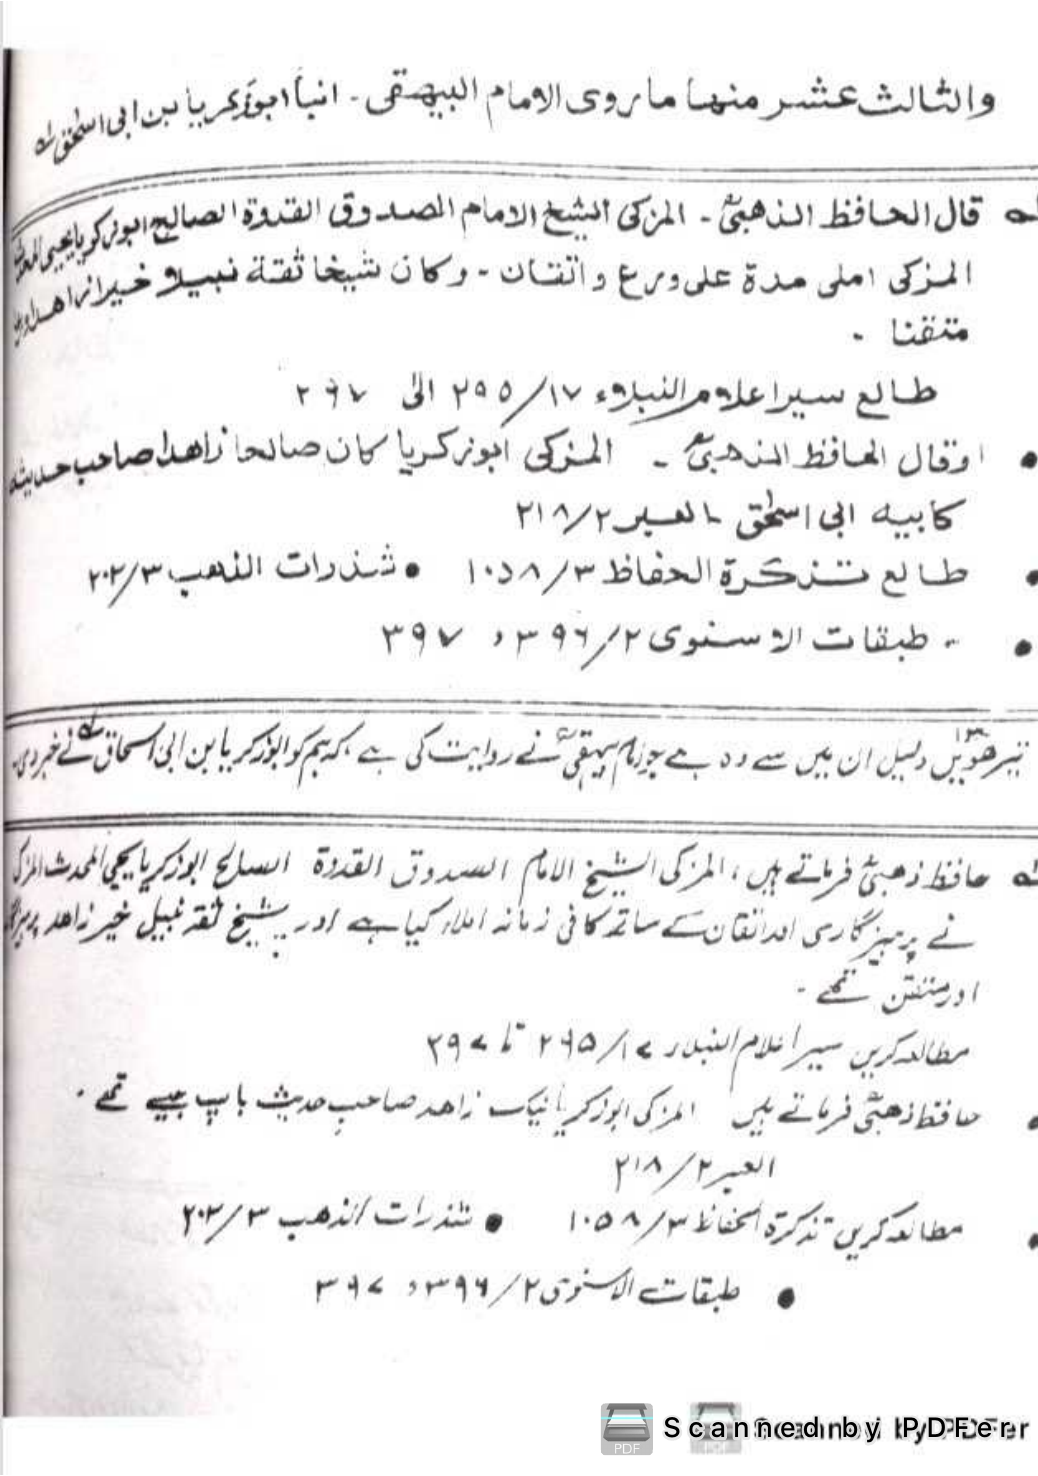 والثالث عشر منها ما روى الامام البيهقى - انبأ ابو زكريا بن ابى اسحٰق لہ
لہ قال الحافظ الذهبىؒ - المزكى الشيخ الامام الصدوق القدوة الصالح ابو زكريا يحيى
المزكى املى مدة على ورع واتقان - وكان شيخا ثقة نبيلا خيرا زاهدا
متقنا -
طالع سير اعلام النبلاء ١٧/٢٩٥ الى ٢٩٧
• اوقال الحافظ الذهبىؒ - المزكى ابو زكريا كان صالحا زاهدا صاحب حديث
كابيه ابى اسحٰق - العبر ٢/٢١٨
• طالع تذكرة الحفاظ ٣/١٠٥٨ • شذرات الذهب ٣/٢٠٢
• - طبقات الاسنوى ٢/٣٩٦، ٣٩٧
تیرھویں دلیل ان میں سے وہ ہے جو امام بیہقیؒ نے روایت کی ہے کہ ہم کو ابو زکریا بن ابی اسحاق لہ نے خبر دی۔
لہ حافظ ذھبیؒ فرماتے ہیں، المزکی الشیخ الامام الصدوق القدوۃ الصالح ابو زکریا یحیی المحدث المزکی
نے پرہیزگاری اور اتقان کے ساتھ کافی زمانہ املاء کیا ہے اور یہ شیخ ثقہ نبیل خیر زاھد
اور متقن تھے -
مطالعہ کریں سیر اعلام النبلاء ۱۷/۲۹۵ تا ۲۹۷
• حافظ ذھبیؒ فرماتے ہیں المزکی ابو زکریا نیک زاھد صاحبِ حدیث باپ جیسے تھے .
العبر ۲/۲۱۸
• مطالعہ کریں تذکرۃ الحفاظ ۳/۱۰۵۸ • شذرات الذھب ۳/۲۰۲
• طبقات الاسنوی ۲/۳۹۶، ۳۹۷
Scanned by PDFer